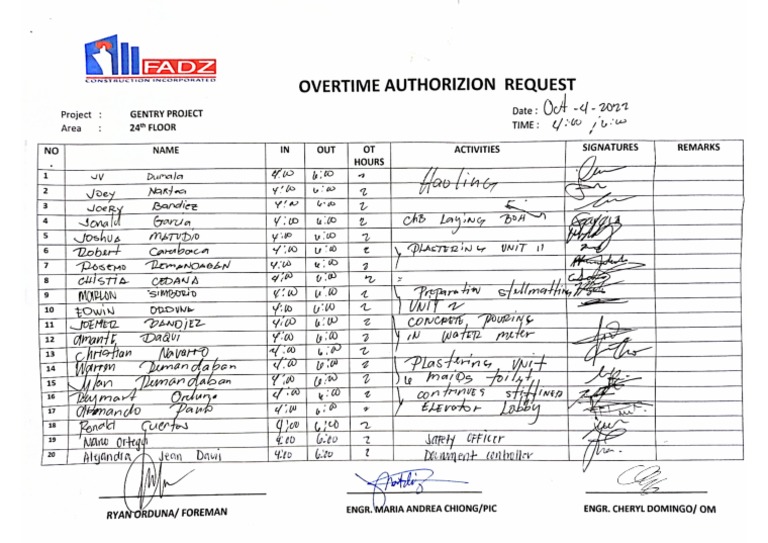 FADZ
CONSTRUCTION INCORPORATED
OVERTIME AUTHORIZION REQUEST
Project : GENTRY PROJECT
Date : Oct -4-2022
Area : 24th FLOOR
TIME : 4:00 ; 6:00
NO. NAME IN OUT OT HOURS ACTIVITIES SIGNATURES REMARKS
1 JV Dumala 4:00 6:00 2
2 Joey 4:00 6:00 2 Haoling
3 Joery Bandiez 4:00 6:00 2
4 Jonald Garcia 4:00 6:00 2 CHB Laying BOH
5 Joshua MATUDIO 4:00 6:00 2
6 Robert Carabaca 4:00 6:00 2 PLASTERING UNIT 11
7 ROSEMO REMANDABAN 4:00 6:00 2
8 CHISTIA CEDANA 4:00 6:00 2 =
9 MARLON SIMBORIO 4:00 6:00 2 Preparation stellmatting
10 EDWIN ORDUNA 4:00 6:00 2 UNIT 2
11 JOEMER BANDIEZ 4:00 6:00 2 CONCRETE POURING
12 Amante DAQUI 4:00 6:00 2 IN WATER meter
13 Christian Navarro 4:00 6:00 2
14 Warren Demandaban 4:00 6:00 2 Plastering UNIT
15 Demandaban 4:00 6:00 2 6 maids toilet
16 Raymart Orduna 4:00 6:00 2 continues stiffined
17 Armando Pano 4:00 6:00 2 ELEVATOR Lobby
18 Ronald Cuentos 4:00 6:00 2
19 Nano Ortega 4:00 6:00 2 Safety Officer
20 Alyandra Jean Davis 4:00 6:00 2 Document controller
RYAN ORDUNA/ FOREMAN
ENGR. MARIA ANDREA CHIONG/PIC
ENGR. CHERYL DOMINGO/ OM